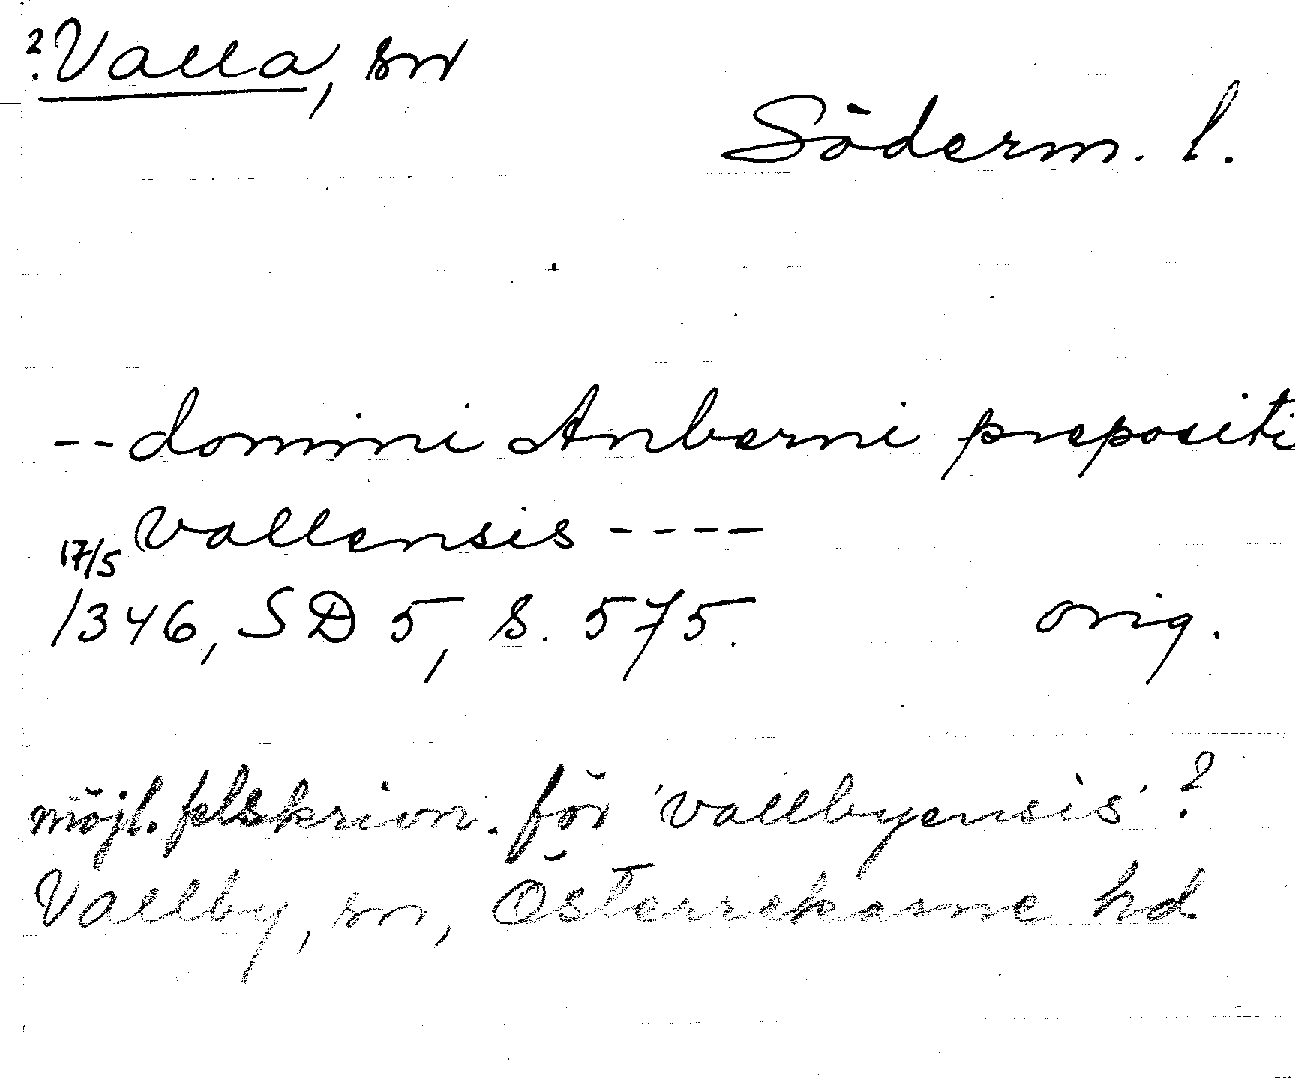 ? Valla, sn
Söderm. l.
-- domini Anberni prepositi
vallensis ----
17/5
1346, SD 5, s. 575. orig.
möjl. felskrivn. för 'vallbyensis'?
Vallby, sn, Österrekarne hd